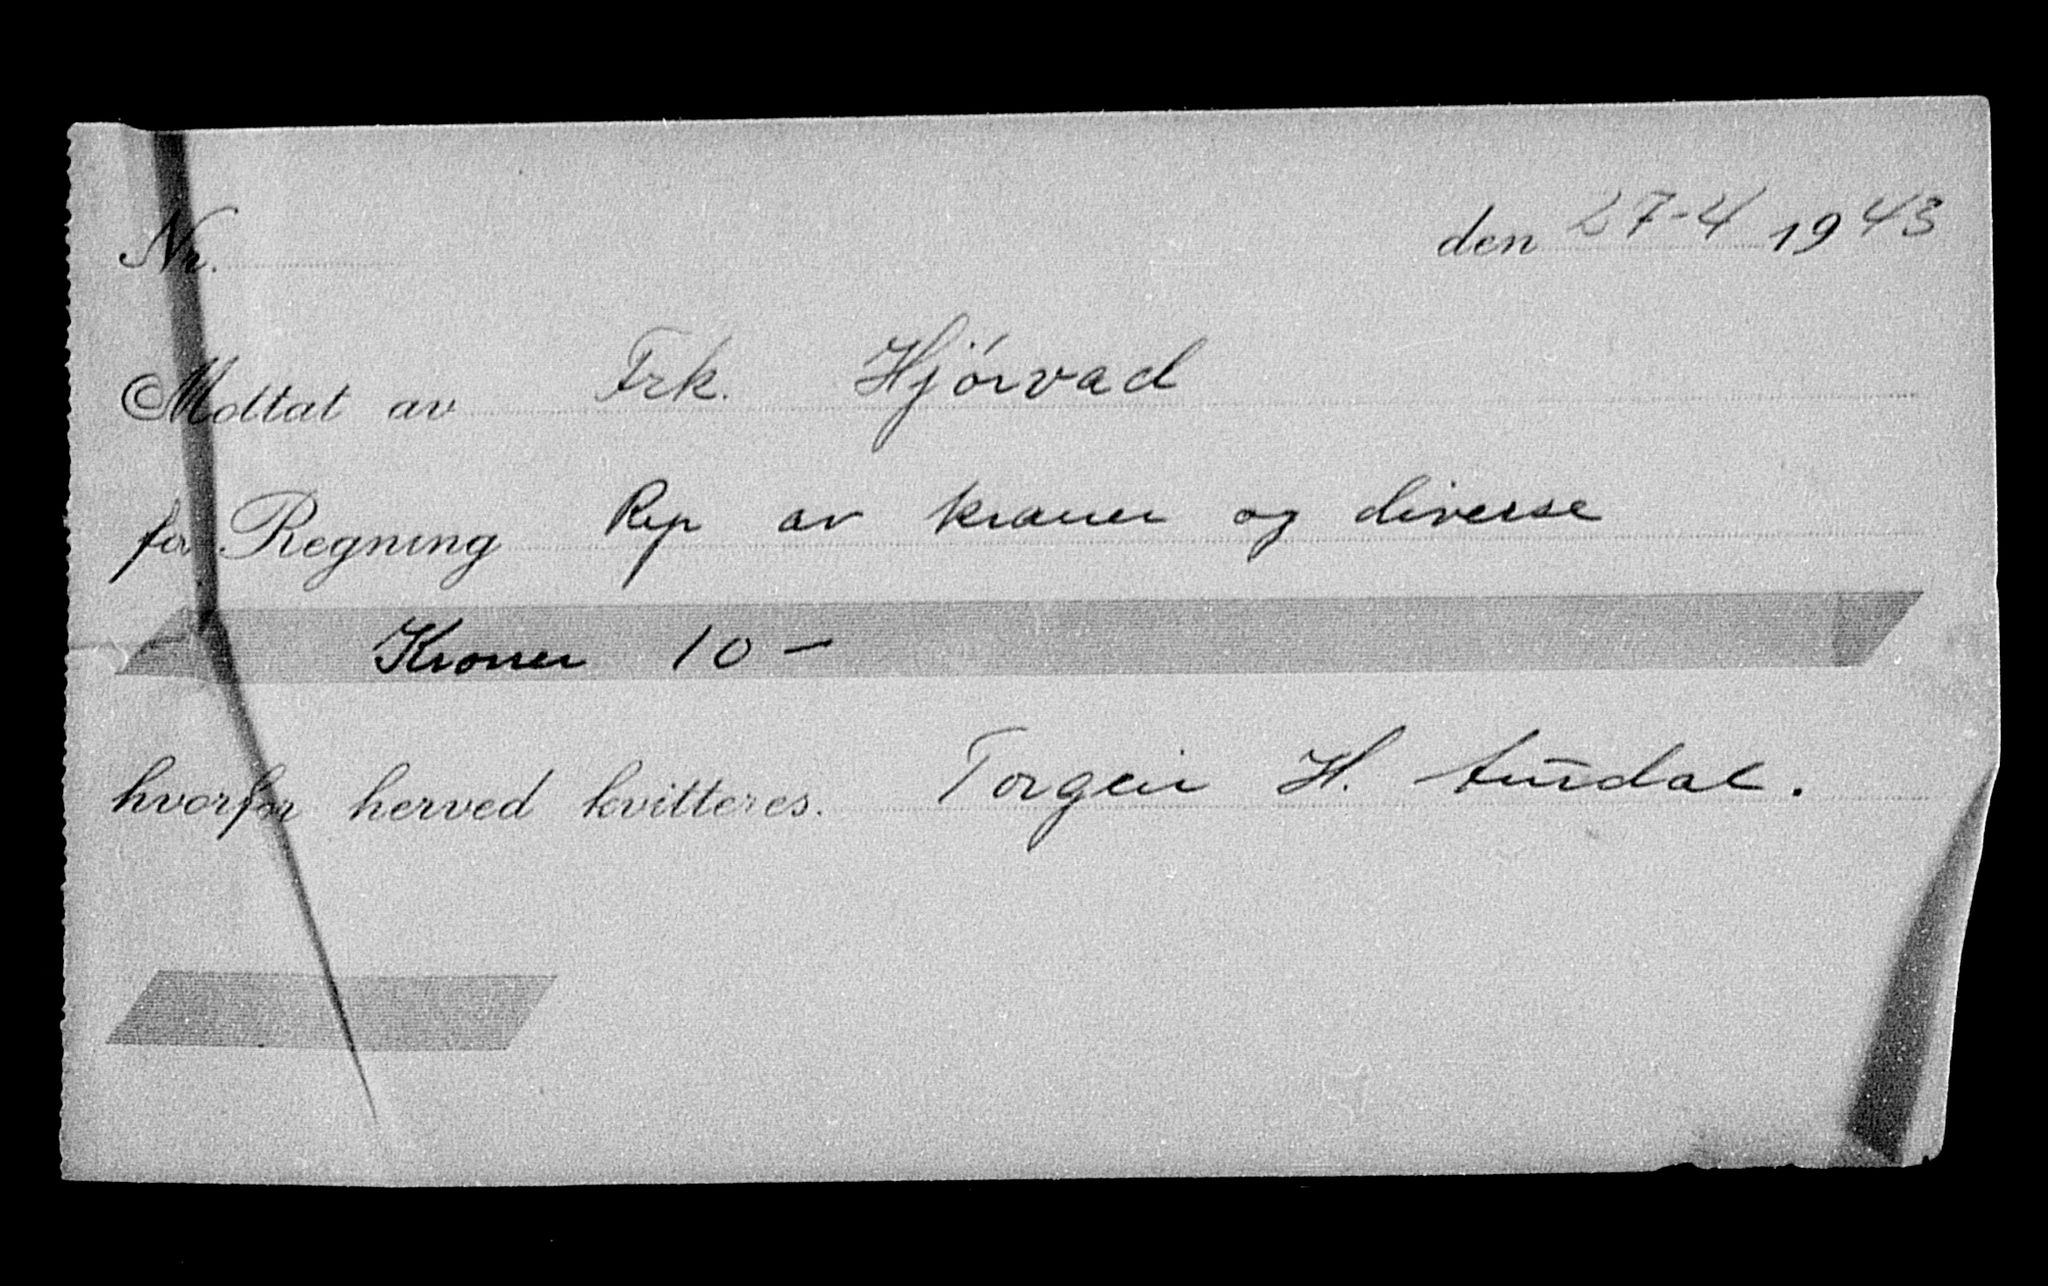 Nr. den 27-4 1943
Mottat av Frk. Hjørvad
for Regning Rep av kraner og diverse
Kroner 10 –
hvorfor herved kvitteres. Torgeir H.